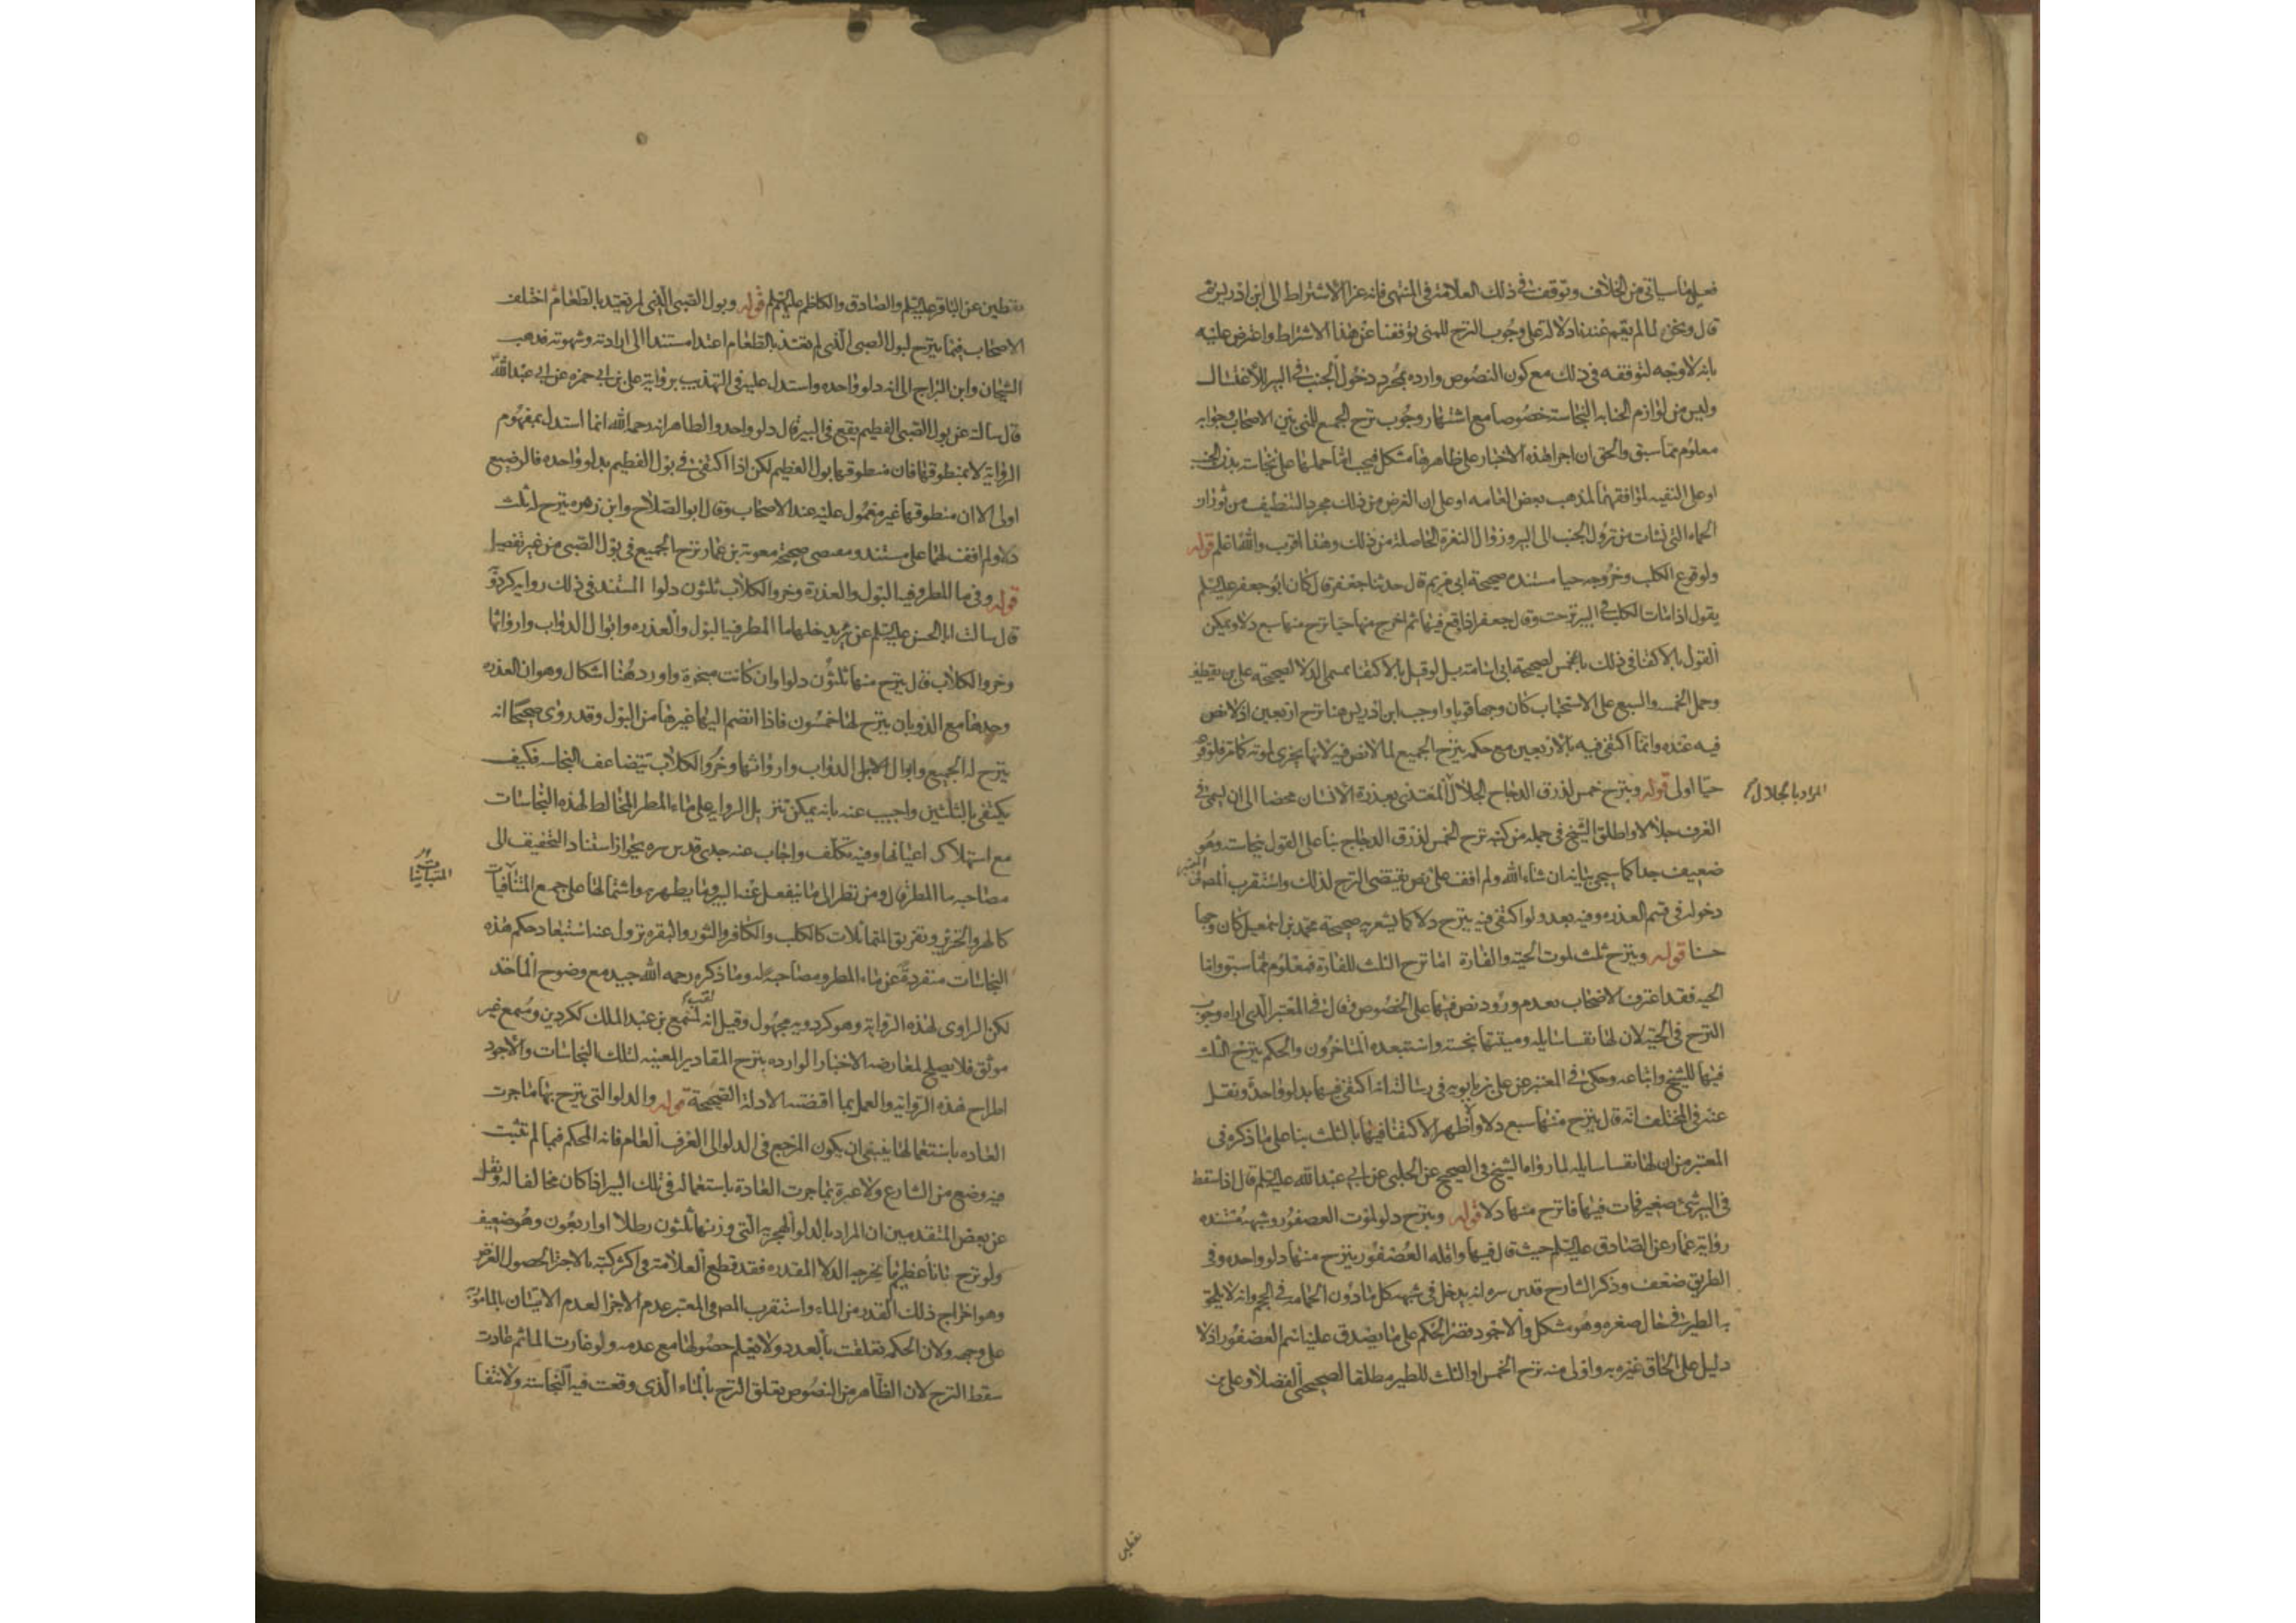 فعلى ما سياتى من الخلاف وتوقف فى ذلك العلامة فى المنتهى فانه عزا الاشتراط الى ابن ادريس ثم
قال ونحن لما لم يقم عندنا دلالة على وجوب النزح للمنى توقفنا عن هذا الاشتراط واعترض عليه
بانه لا وجه لتوقفه فى ذلك مع كون النصوص وارده بمجرد دخول الجنب فى البير للاغتسال
وليس من لوازم الجنابه النجاسة خصوصا مع اشتهار وجوب نزح الجميع للمنى بين الاصحاب وجوابه
معلوم مما سبق والحق ان اجرا هذه الاخبار على ظاهرها مشكل فيجب اما حملها على نجاسة بدن الجنب
او على التقيه لموافقتها لمذهب بعض العامه او على ان الغرض من ذلك مجرد التنظيف من ثوران
الحماه التى نشات من نزول الجنب الى البير وزوال النفرة الحاصلة من ذلك وهذا اقرب والله اعلم قوله
ولوقوع الكلب وخروجه حيا مستنده صحيحة ابى مريم قال حدثنا جعفر قال كان ابو جعفر عليه السلم
يقول اذا مات الكلب فى البير نزحت وقال جعفر اذا وقع فيها ثم اخرج منها حيا نزح منها سبع دلا ويمكن
القول بالاكتفا فى ذلك بالخمس لصحيحة ابى اسامة بل لو قيل بالاكتفا بمسمى الدلا لصحيحة على بن يقطين
وحمل الخمس والسبع على الاستحباب كان وجها قويا واوجب ابن ادريس هنا نزح اربعين اذ لا نص
فيه عنده وانما اكتفى فيه بالاربعين مع حكمه بنزح الجميع لما لا نص فيه لانها يجزى لموته كما مر فلوقوعه
حيا اولى قوله وبنزح خمس لذرق الدجاج الجلال المغتذى بعذرة الانسان محضا الى ان يسمى فى
المراد بالجلال
العرف جلالا واطلق الشيخ فى جمله من كتبه نزح الخمس لذرق الدجاج بنا على القول بنجاسته وهو
ضعيف جدا كما سيجى بيانه ان شاء الله ولم اقف على نص يقتضى النزح لذلك واستقرب المص فى المعتبر
دخوله فى قسم العذره وفيه بعد ولو اكتفى فيه بنزح دلا كما يشعر به صحيحة محمد بن اسمعيل كان وجها
حسنا قوله وبنزح ثلث لموت الحية والفارة اما نزح الثلث للفارة فمعلوم مما سبق واما
الحيه فقد اعترف الاصحاب بعدم ورود نص فيها على الخصوص وقال فى المعتبر الذى اراه وجوب
النزح فى الحية لان لها نفسا سايله وميتتها نجسة واستبعده المتاخرون والحكم بنزح الثلث
فيها للشيخ واتباعه وحكى فى المعتبر عن على بن بابويه فى رسالته انه اكتفى فيها بدلو واحد ونقل
عنه فى المختلف انه قال ينزح منها سبع دلا والظهر الاكتفا فيها بالثلث بنا على ما ذكره فى
المعتبر من ان لها نفسا سايله لما رواه الشيخ فى الصحيح عن الحلبى عن ابى عبد الله عليه السلم قال اذا سقط
فى البير شئ صغير فمات فيها فانزح منها دلا قوله وبنزح دلو لموت العصفور وشبهه مستنده
رواية عمار عن الصادق عليه السلم حيث قال فيها واقله العصفور ينزح منها دلو واحده وفى
الطريق ضعف وذكر الشارح قدس سره انه يدخل فى شبهه كل ما دون الحمامه فى الحجم وانه لا يلحق
به الطير فى حال صغره وهو مشكل والاجود قصر الحكم على ما يصدق عليه اسم العصفور اذ لا
دليل على الحاق غيره به واولى منه نزح الخمس او الثلث للطير مطلقا لصحيحتى الفضلا وعلى بن
يقطين
يقطين عن الباقر عليه السلم والصادق والكاظم عليهم السلم قوله وبول الصبى الذى لم يغتد بالطعام اختلف
الاصحاب فيما ينزح لبول الصبى الذى لم يغتذ بالطعام اغتذا مستندا الى ارادته وشهوته فذهب
الشيخان وابن البراج الى انه دلو واحده واستدل عليه فى التهذيب برواية على بن ابى حمزه عن ابى عبد الله
قال سالته عن بول الصبى الفطيم يقع فى البير قال دلو واحد والظاهر انه رحمه الله انما استدل بمفهوم
الرواية لا بمنطوقها فان منطوقها بول الفطيم لكن اذا اكتفى فى بول الفطيم بدلو واحده فالرضيع
اولى الا ان منطوقها غير معمول عليه عند الاصحاب وقال ابو الصلاح وابن زهره ينزح له ثلث
دلا ولم اقف لهما على مستند ومقتضى صحيحة معوية بن عمار نزح الجميع فى بول الصبى من غير تفصيل
قوله وفى ما المطر وفيه البول والعذرة وخرو الكلاب ثلثون دلوا المستند فى ذلك روايه كردويه
قال سالت ابا الحسن عليه السلم عن بير يدخلها ما المطر فيه البول والعذره وابوال الدواب وارواثها
وخرو الكلاب قال ينزح منها ثلثون دلوا وان كانت مبخرة واورد هنا اشكال وهو ان العذره
وحدها مع الذوبان ينزح لها خمسون فاذا انضم اليها غيرها من البول وقد روى صحيحا انه
ينزح له الجميع وابوال الابل الدواب وارواثها وخرو الكلاب يتضاعف النجاسه فكيف
يكتفى بالثلثين واجيب عنه بانه يمكن تنزيل الروايه على ماء المطر المخالط لهذه النجاسات
مع استهلاك اعيانها وفيه تكلف واجاب عنه جدى قدس سره بجواز استناد التخفيف الى
مصاحبه ما المطر قال ومن نظر الى ما ينفعل عنه البير وما يطهر به واشتمالها على جمع المتنافيات
المتباينات
كالهر والخنزير وتفريق المتماثلات كالكلب والكافر والثور والبقره تزول عنه استبعاد حكم هذه
النجاسات منفردة عن ماء المطر ومصاحبه له وما ذكره رحمه الله جيد مع وضوح الماخذ
لكن الراوى لهذه الرواية وهو كردويه مجهول وقيل انه لقب لمسمع بن عبد الملك ككردين ومسمع غير
موثق فلا يصلح لمعارضه الاخبار الوارده بنزح المقادير المعينه لتلك النجاسات والاجود
اطراح هذه الرواية والعمل بما اقتضته الادلة الصحيحة قوله والدلو التى ينزح بها ما جرت
العاده باستعمالها ينبغى ان يكون المرجع فى الدلو الى العرف العام فانه المحكم فيما لم يثبت
فيه وضع من الشارع ولا عبرة بما جرت العادة باستعماله فى تلك البير اذا كان مخالفا له ونقل
عن بعض المتقدمين ان المراد بالدلو الهجريه التى وزنها ثلثون رطلا او اربعون وهو ضعيف
ولو نزح باناء عظيم ما يخرجه الدلا المقدره فقد قطع العلامة فى اكثر كتبه بالاجزا لحصول الغرض
وهو اخراج ذلك القدر من الماء واستقرب المص فى المعتبر عدم الاجزا لعدم الاتيان بالمامور به
على وجهه ولان الحكمة تعلقت بالعدد ولا يعلم حصولها مع عدمه ولو غارت الما ثم عادت
سقط النزح لان الظاهر من النصوص تعلق النزح بالماء الذى وقعت فيه النجاسة ولانتفا